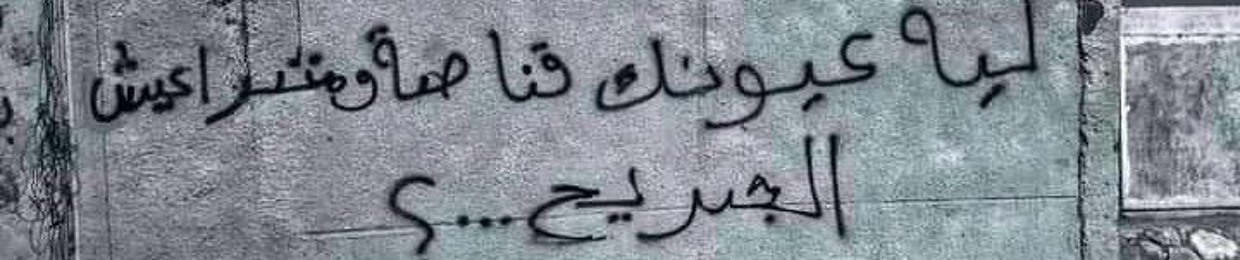 ليه عيونك قناصة ومتراعيش
الجريح...؟